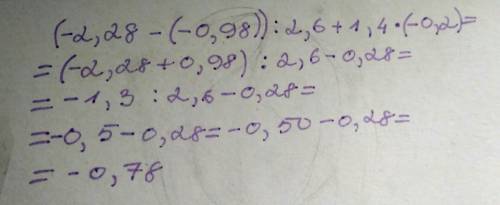 (-2,28-(-0,98)):2,6+1,4·(-0,2)=
=(-2,28+0,98) : 2,6-0,28=
=-1,3 : 2,6-0,28=
=-0,5-0,28=-0,50-0,28=
=-0,78